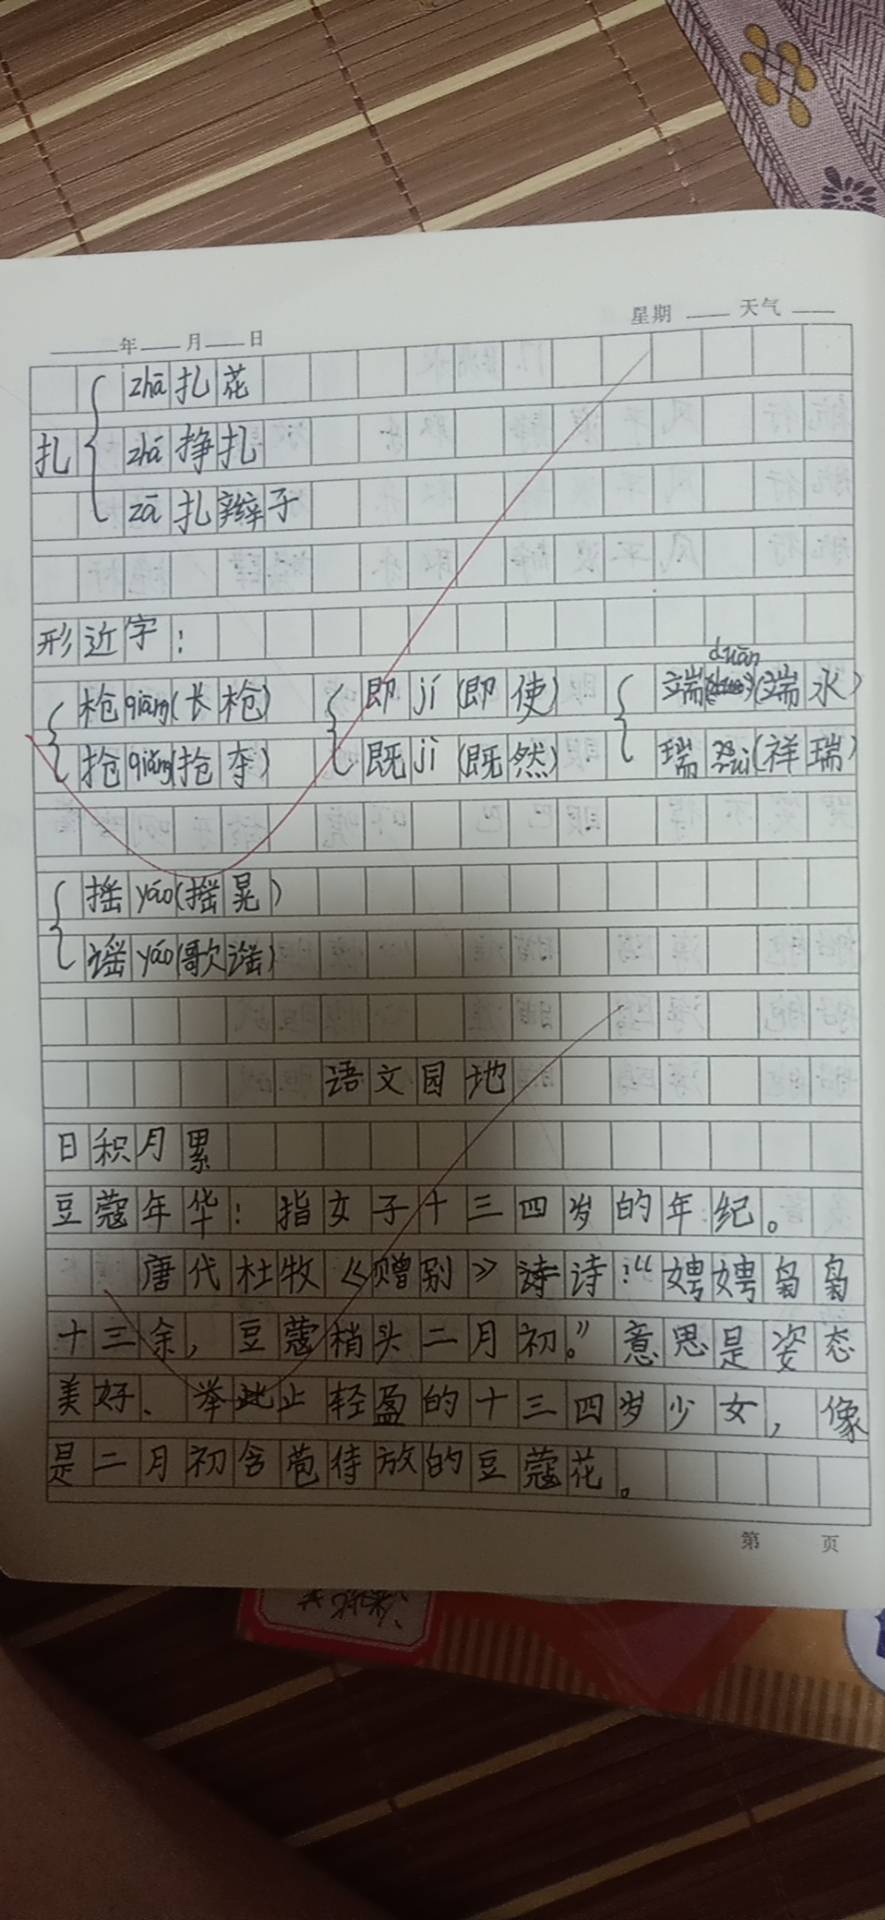 年 月 日 星期 天气
zhā 扎花
扎 zhá 挣扎
zā 扎辫子
形近字：
枪qiāng(长枪) 即jí(即使) 端duān(端水)
抢qiǎng(抢夺) 既jì(既然) 瑞ruì(祥瑞)
摇yáo(摇晃)
谣yáo(歌谣)
语文园地
日积月累
豆蔻年华：指女子十三四岁的年纪。
唐代杜牧《赠别》诗：“娉娉袅袅
十三余，豆蔻梢头二月初。”意思是姿态
美好、举止轻盈的十三四岁少女，像
是二月初含苞待放的豆蔻花。
第 页